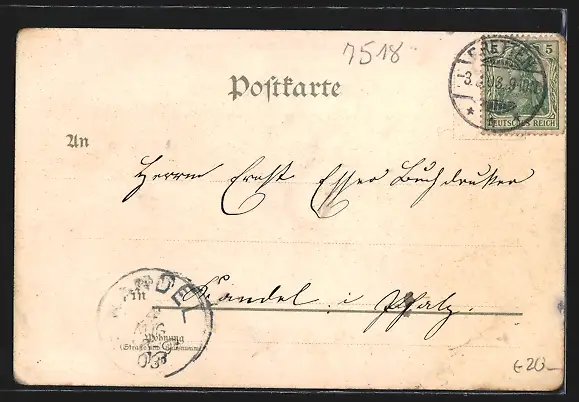 7518
5
BRETTEN
3.
DEUTSCHES REICH
Postkarte
An
Herrn Ernst Esser Buchdrucker
in Kandel i. Pfalz.
KANDEL
Wohnung
(Straße und Hausnummer)
€20-